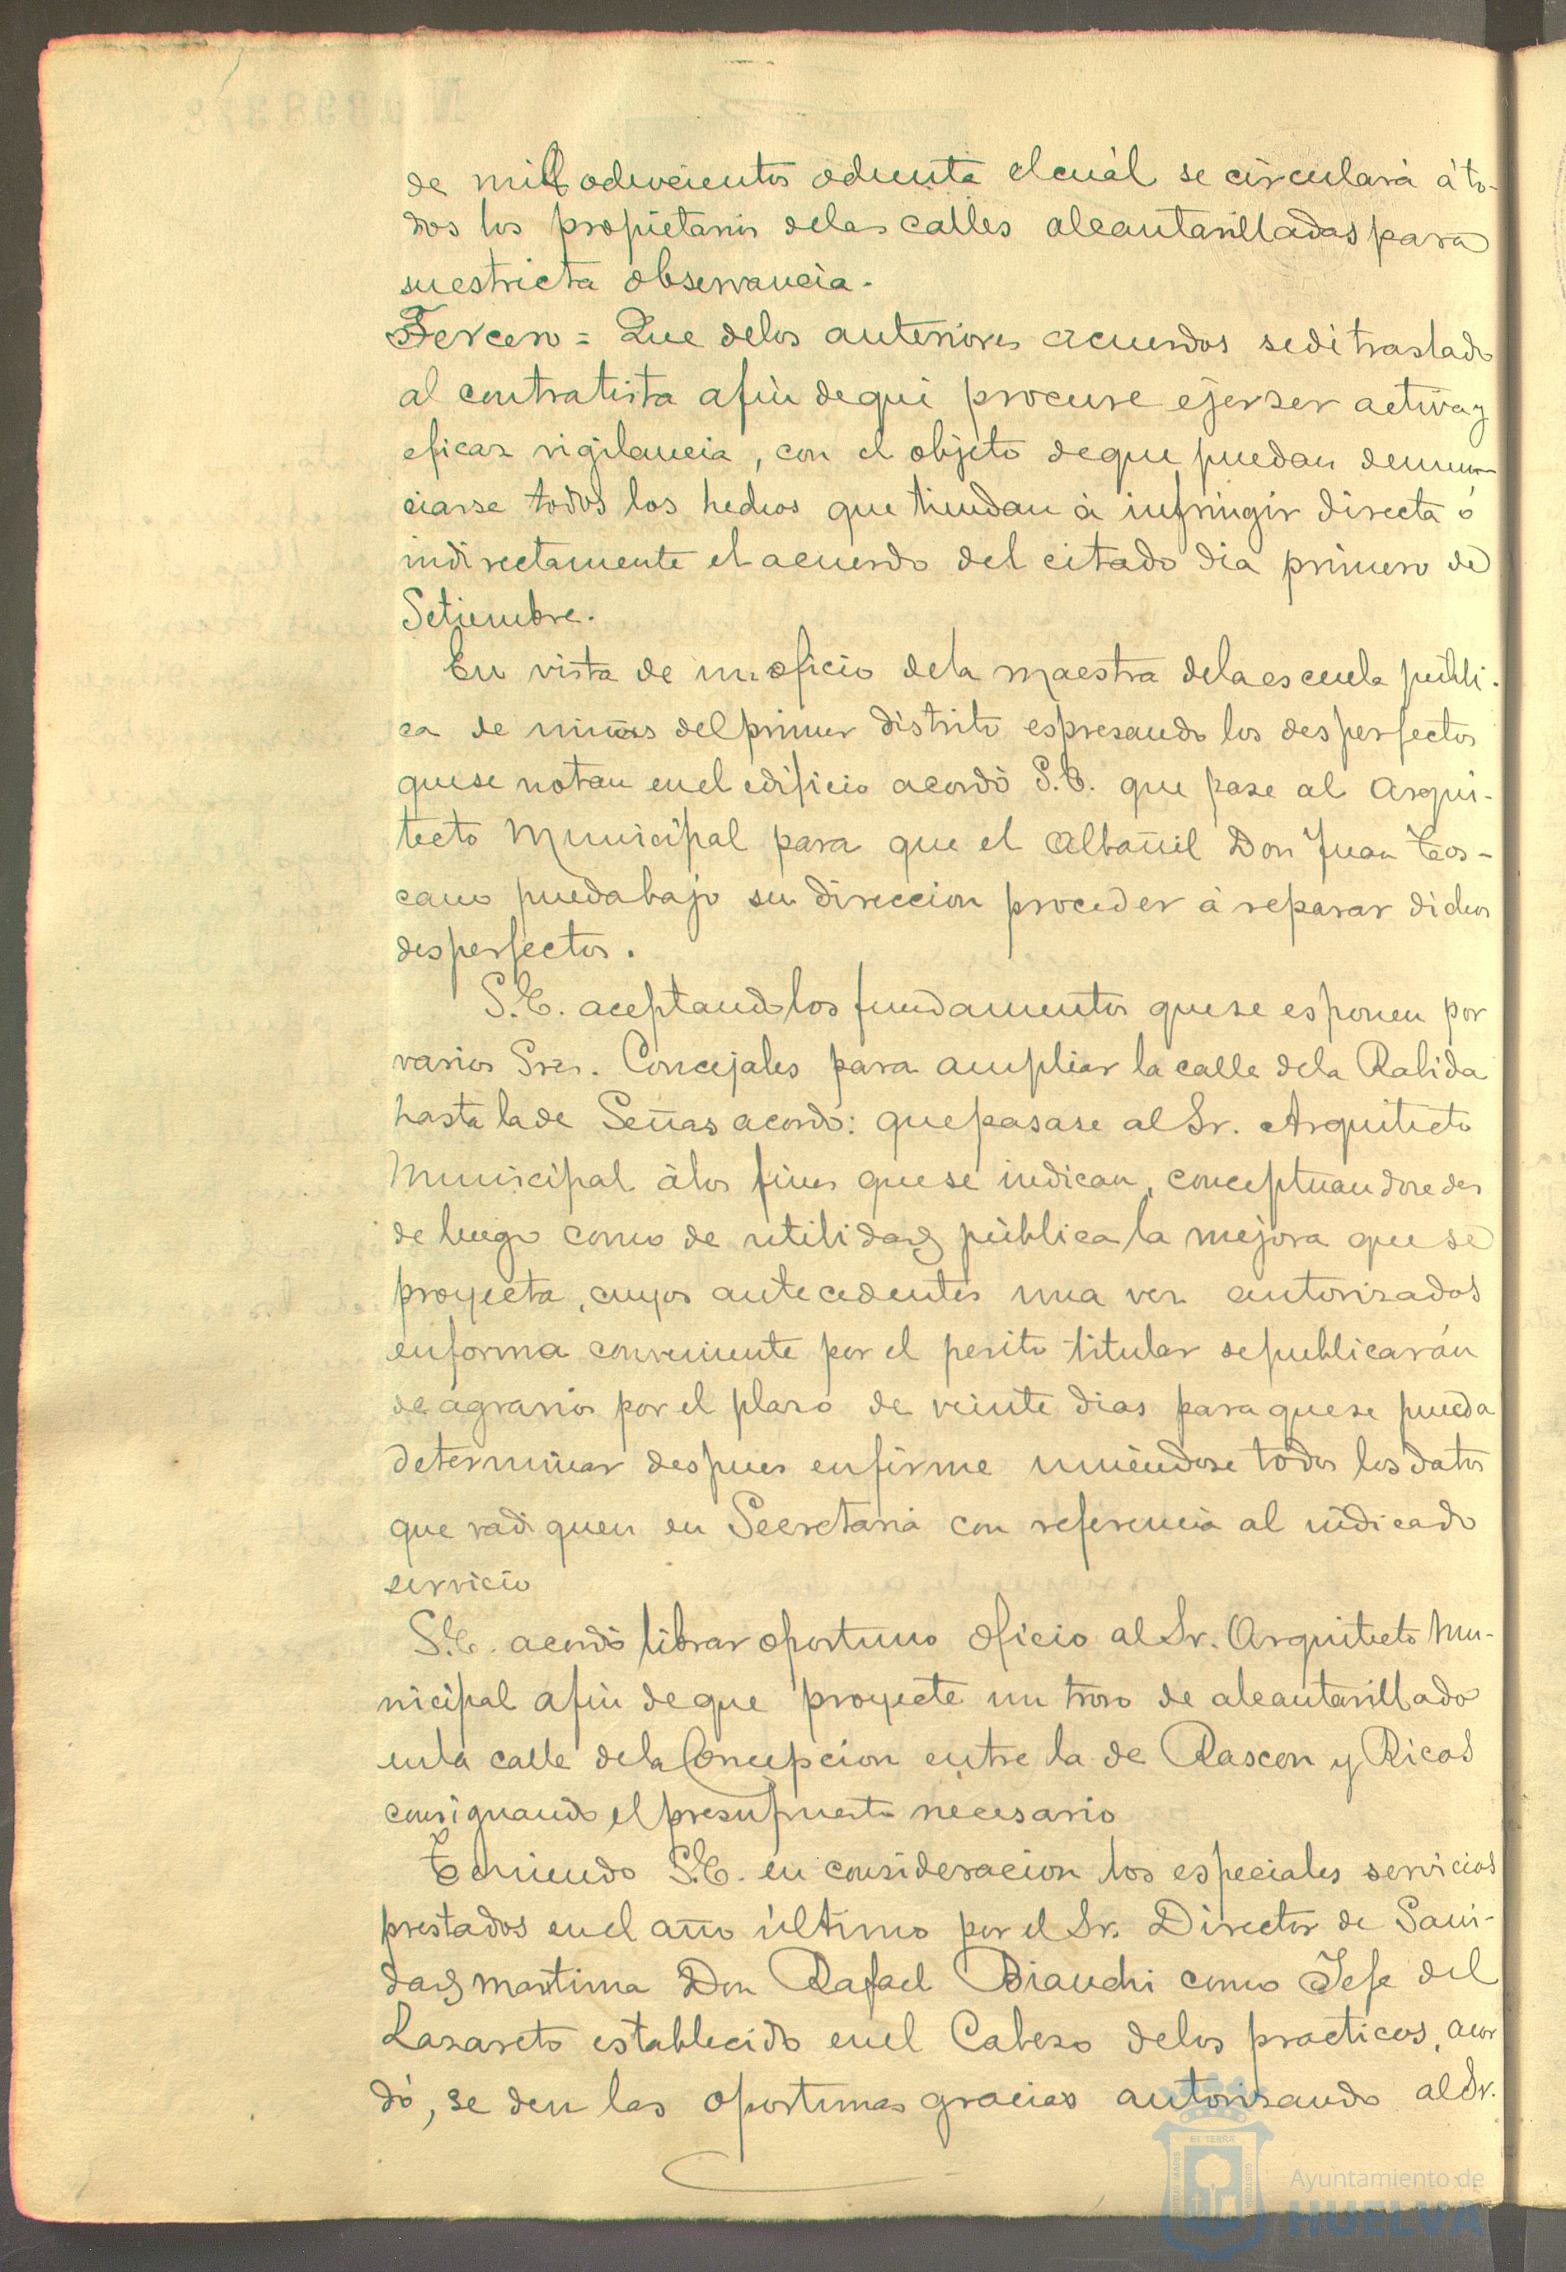 de mil ochocientos ochenta el cuál se circulará á to-
dos los propietarios de las calles alcantarilladas para
su estricta observancia.
Tercero = Que de los anteriores acuerdos se dé traslado
al contratista afin de que procure ejerser activa y
eficaz vigilancia, con el objeto de que puedan denun-
ciarse todos los hechos que tiendan á infringir directa ó
indirectamente el acuerdo del citado dia primero de
Setiembre.
En vista de un oficio de la maestra de la escuela públi-
ca de niñas del primer distrito espresando los desperfectos
que se notan en el edificio acordó S.E. que pase al Arqui-
tecto Municipal para que el Albañil Don Juan Tos-
cano pueda bajo su direccion proceder á reparar dichos
desperfectos.
S.E. aceptando los fundamentos que se esponen por
varios Sres. Concejales para ampliar la calle de la Rabida
hasta la de Señas acordó: que pasase al Sr. Arquitecto
Municipal á los fines que se indican, conceptuandose des
de luego como de utilidad pública la mejora que se
proyecta, cuyos antecedentes una vez autorizados
en forma conveniente por el perito titular se publicarán
de agravios por el plazo de veinte dias para que se pueda
determinar despues en firme uniéndose todos los datos
que radiquen en Secretaria con referencia al indicado
servicio
S.E. acordó librar oportuno oficio al Sr. Arquitecto Mu-
nicipal afin de que proyecte un trozo de alcantarillado
en la calle de la Concepcion entre la de Rascon y Ricos
consignando el presupuesto necesario
Teniendo S.E. en consideracion los especiales servicios
prestados en el año último por el Sr. Director de Sani-
dad maritima Don Rafael Bianchi como Jefe del
Lazareto establecido en el Cabezo de los practicos, acor
dó, se den las oportunas gracias autorizando al Sr.
Ayuntamiento de
HUELVA